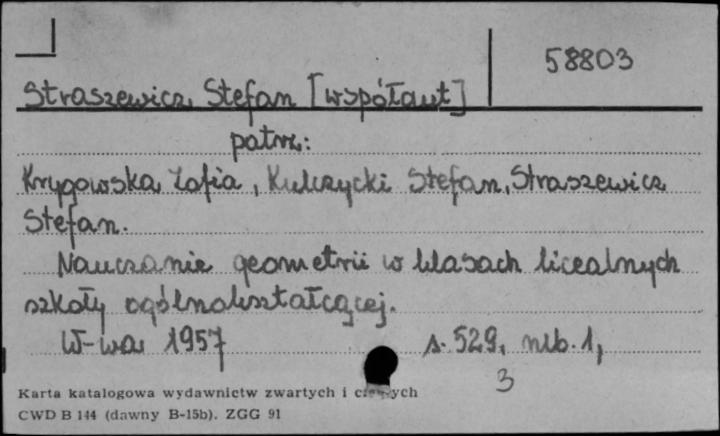 58803
Straszewicz Stefan [współaut]
patrz:
Krygowska Zofia, Kulczycki Stefan, Straszewicz
Stefan.
Nauczanie geometrii w klasach licealnych
szkoły ogólnokształcącej.
W-wa 1957 s. 529, nlb. 1,
3
Karta katalogowa wydawnictw zwartych i ciągłych
CWD B 144 (dawny B-15b). ZGG 91